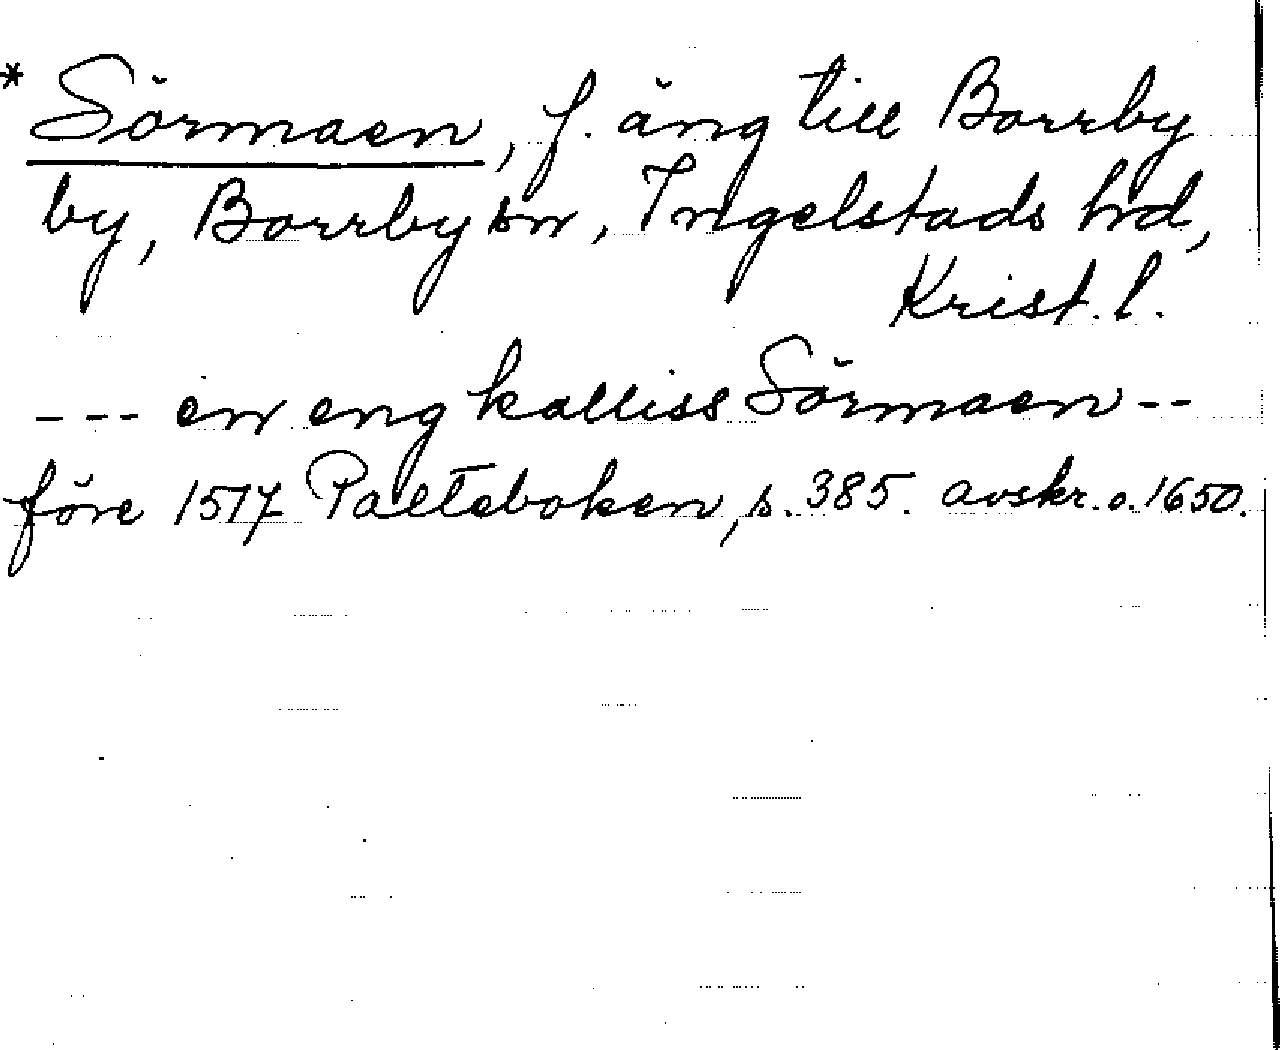 * Sörmaen, f. äng till Borrby
by, Borrby sn, Ingelstads hd,
Krist. l.
--- en eng kalliss Sörmaen --
före 1517 Palteboken, s. 385. avskr. o. 1650.